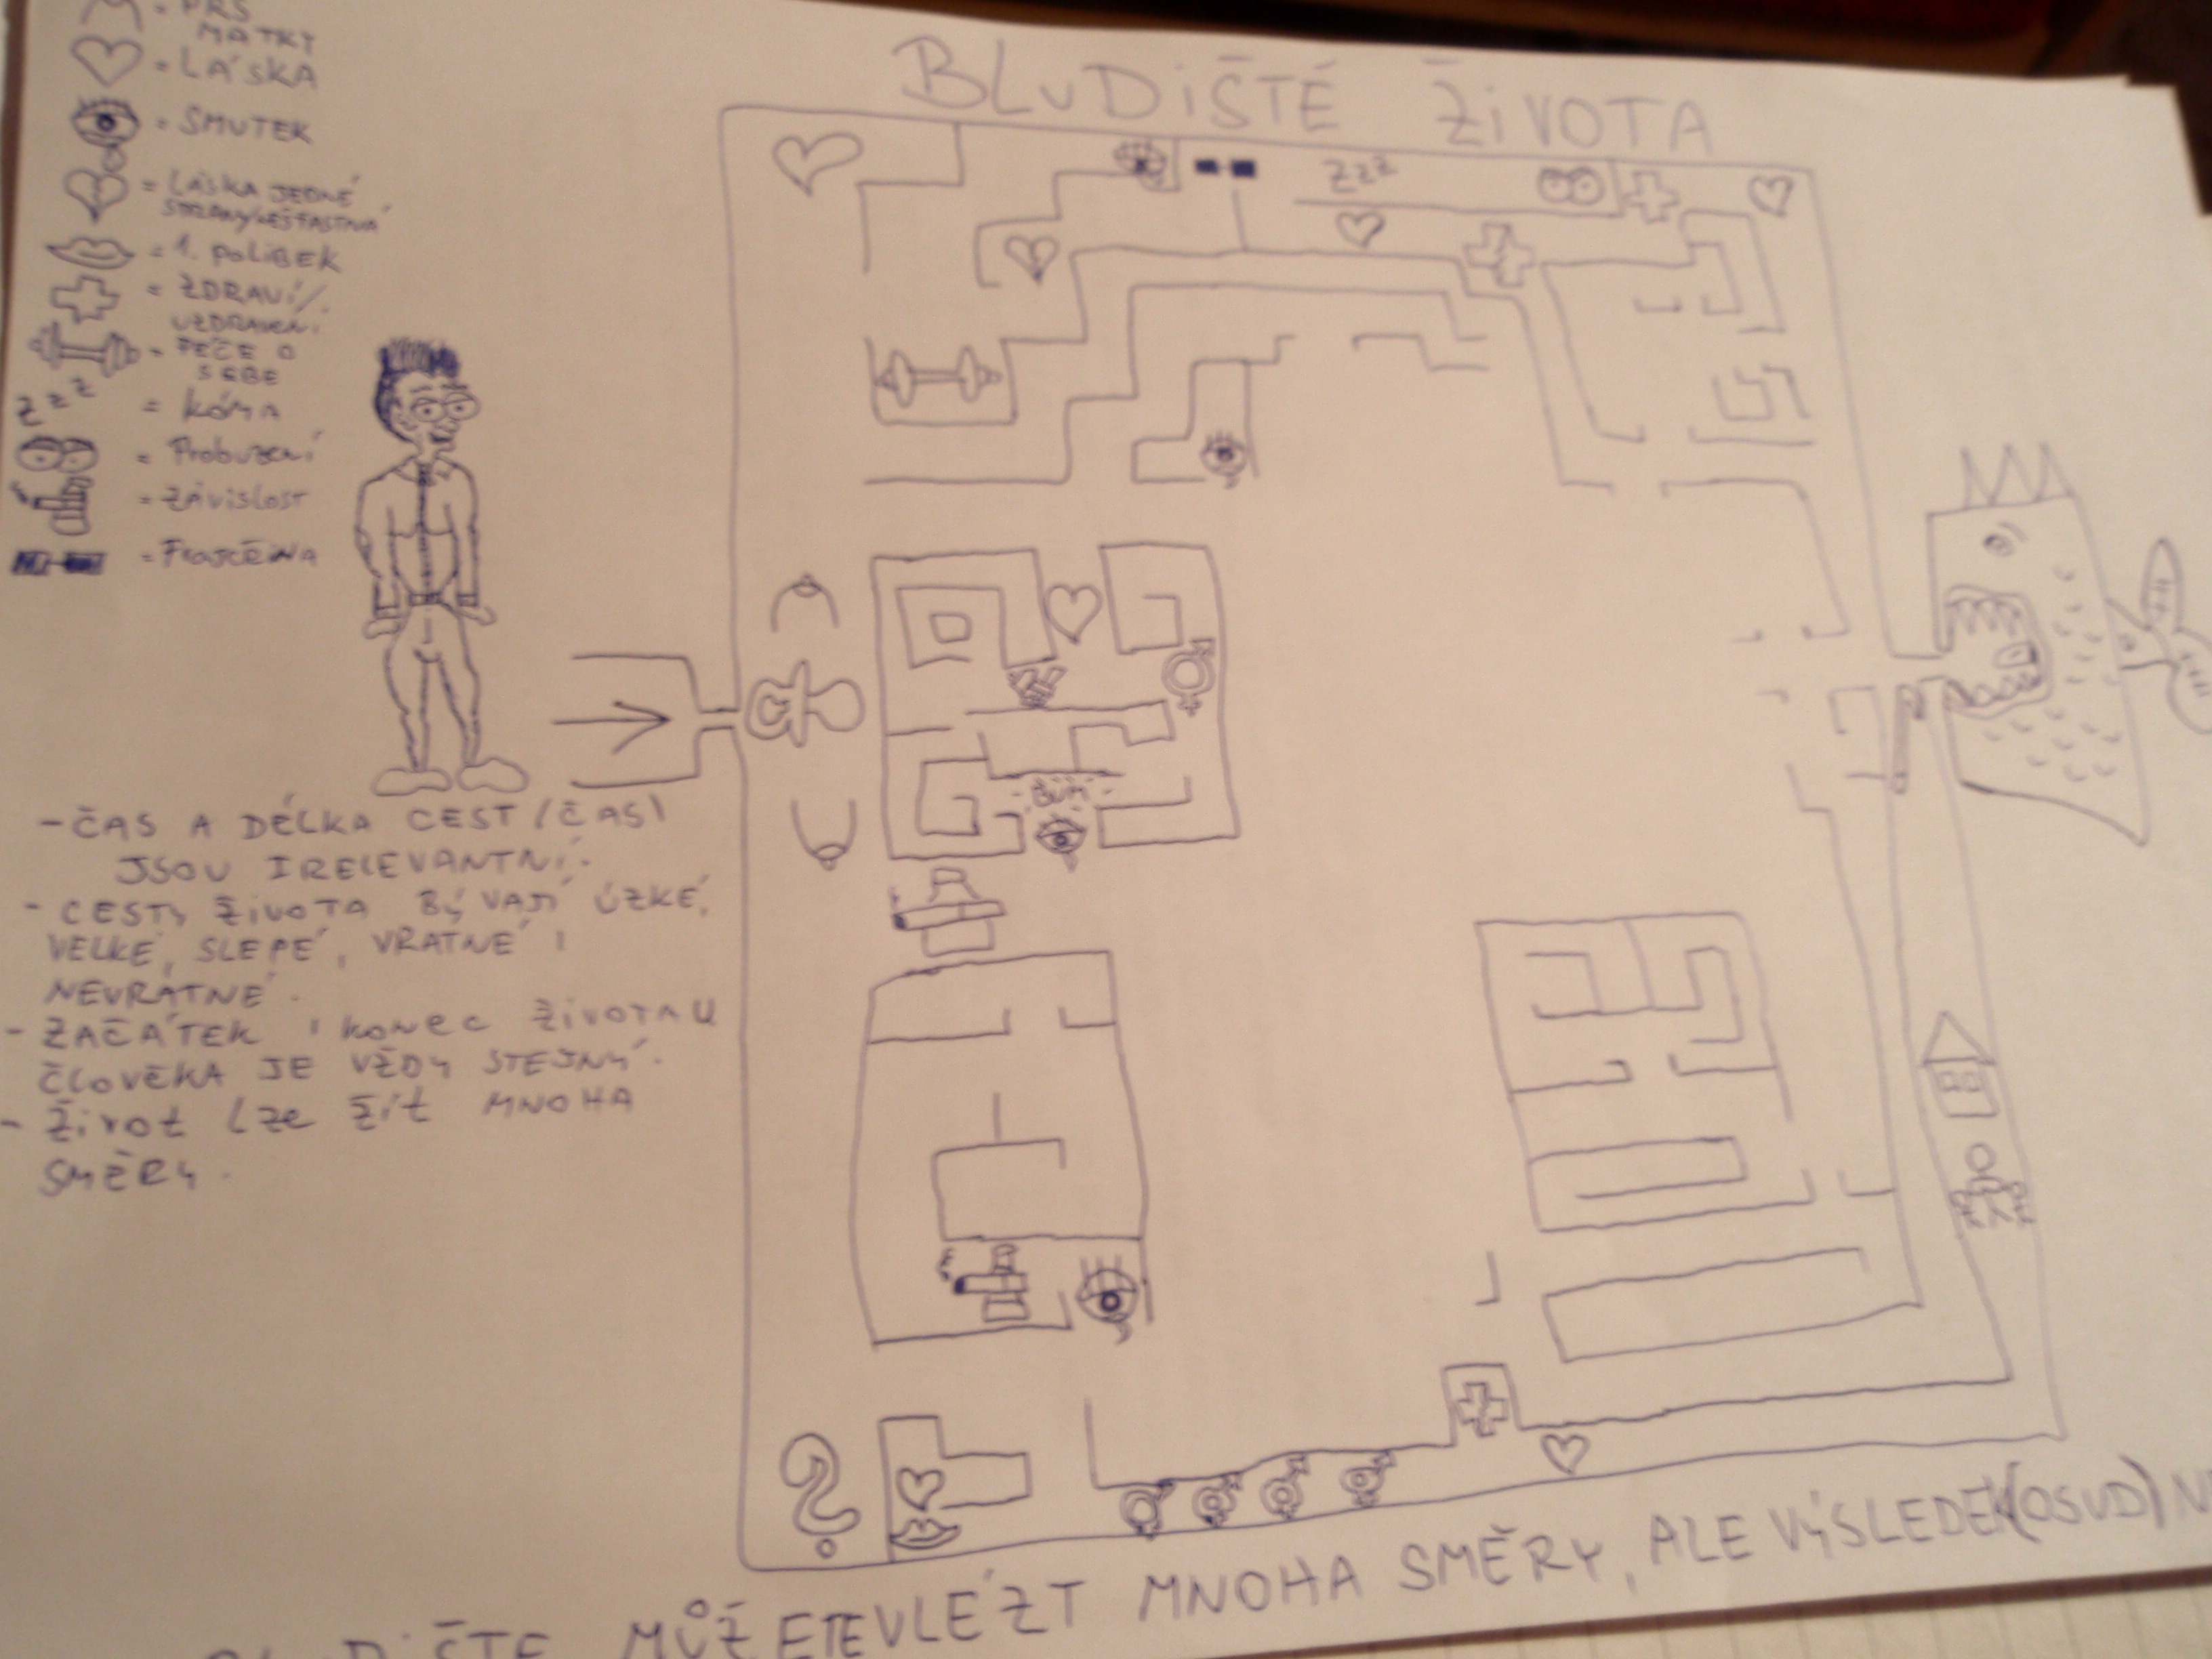 BLUDIŠTĚ ŽIVOTA
= PRS
MATKY
= LÁSKA
= SMUTEK
= LÁSKA JEDNÉ
STRANY/NEŠŤASTNÁ
= 1. POLIBEK
= ZDRAVÍ/
UZDRAVENÍ
= PÉČE O
SEBE
z z z = KÓMA
= Probuzení
= ZÁVISLOST
= FRAJEŘINA
zzz
BUM
- ČAS A DÉLKA CEST /ČAS\
JSOU IRELEVANTNÍ.
- CESTY ŽIVOTA BÝVAJÍ ÚZKÉ,
VELKÉ, SLEPÉ, VRATNÉ I
NEVRATNÉ.
- ZAČÁTEK I KONEC ŽIVOTA U
ČLOVĚKA JE VŽDY STEJNÝ.
- Život lze žít MNOHA
SMĚRY.
?
BLUDIŠTĚ MŮŽETE VLÉZT MNOHA SMĚRY, ALE VÝSLEDEK (OSUD)